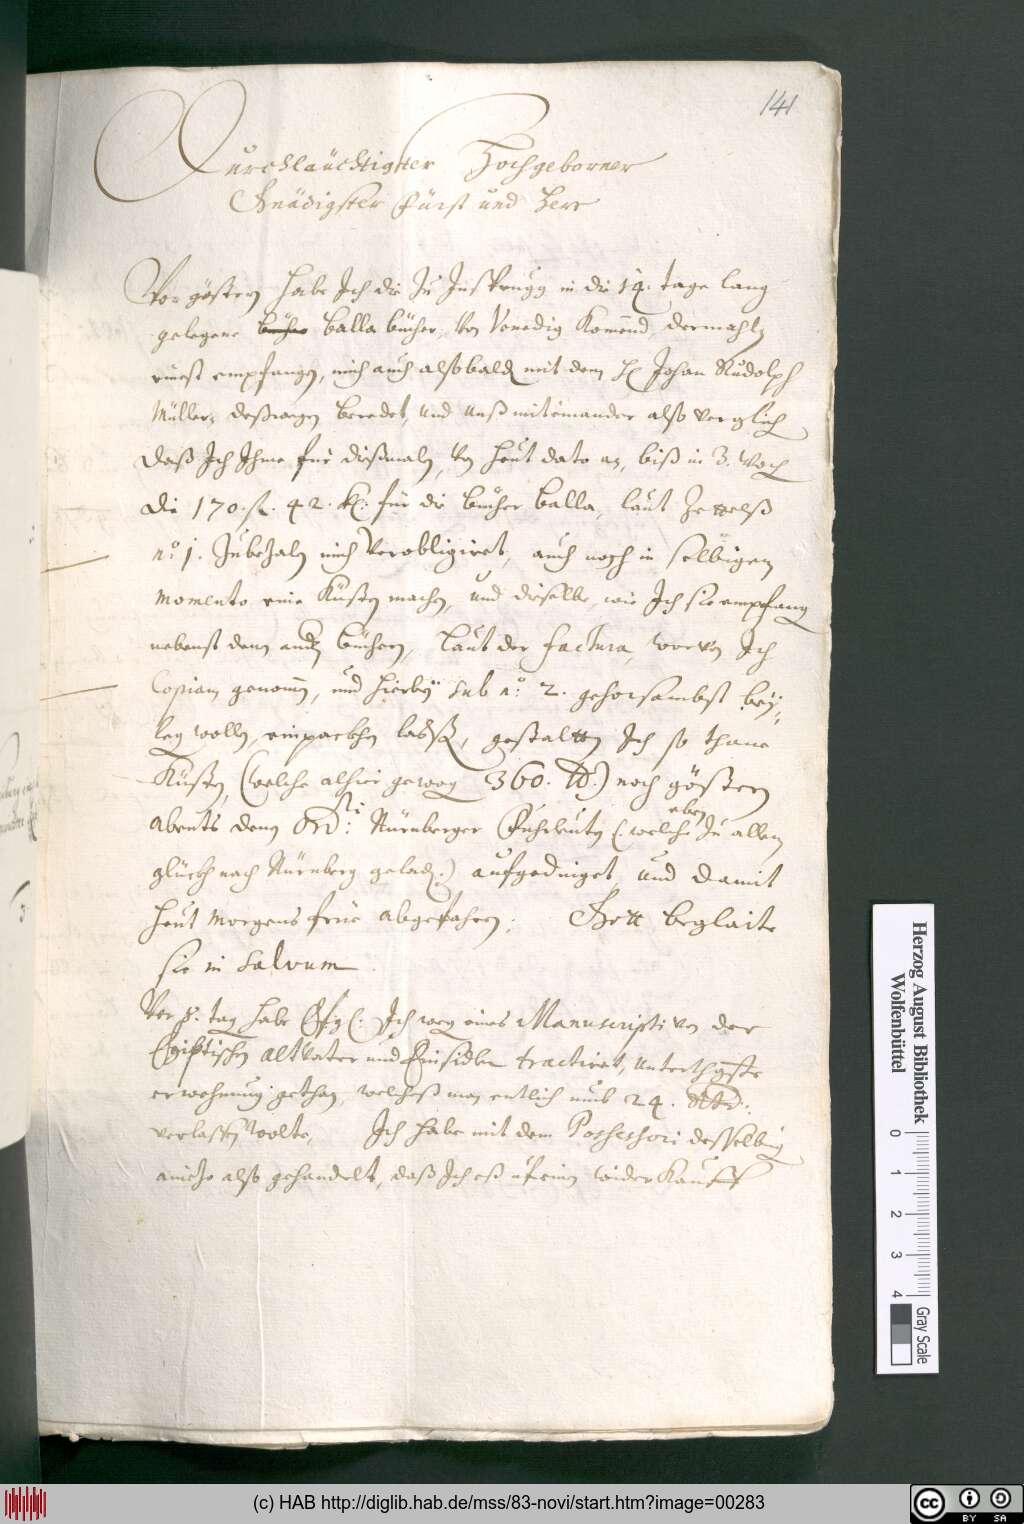 141
Durchläuchtigster Hochgeborner
Gnädigster Fürst und Herr
Vorgöstern habe Ich die zu Insprugg in die 14. tage lang
gelegene Balla bücher, von Venedig komend, dermahls
empfangen, mich auch alsobald mit dem H. Johan Rudolph
Müller, deßwegen beredet, und unß miteinander also verglich
daß Ich Ihme für dißmaln, von heut dato an, biß in 3. Woch
die 170. fl. 42. kr. für die bücher Balla, laut Zettelß
n.o 1. zubezaln mich verobligiret, auch noch in selbigem
momento eine Küsten machen, und dieselbe, wie Ich sie empfang
nebenst den andern büchern, laut der factura, wovon Ich
Copiam genomen, und hierbey sub n.o 2. gehorsambst bey
leg wolln, einpackhen laßen, gestalten Ich so thane
Küsten, (welche alhier gewogen 360. lb.) noch göstern
eben
abents denn Ord.ri Nürnberger Fuhrleuten (welche zu allem
glückh nach Nürnberg geladen.) aufgedinget, und damit
heut morgens früe abgefahren; Gott beglaite
sie in salvum.
Vor 8. tag habe Ich wegen eines Manuscripti von der
Egiptischen altvater und Einsidler tractiret, unterthgste
erwehnung gethan, welcheß man entlich umb 24.
verlassen wolte, Ich habe mit dem Possessori desselbig
anietzo also gehandelt, daß Ich eß uf einen widerkauff
Herzog August Bibliothek
Wolfenbüttel
0 1 2 3 4
Gray Scale
(c) HAB http://diglib.hab.de/mss/83-novi/start.htm?image=00283
cc BY SA